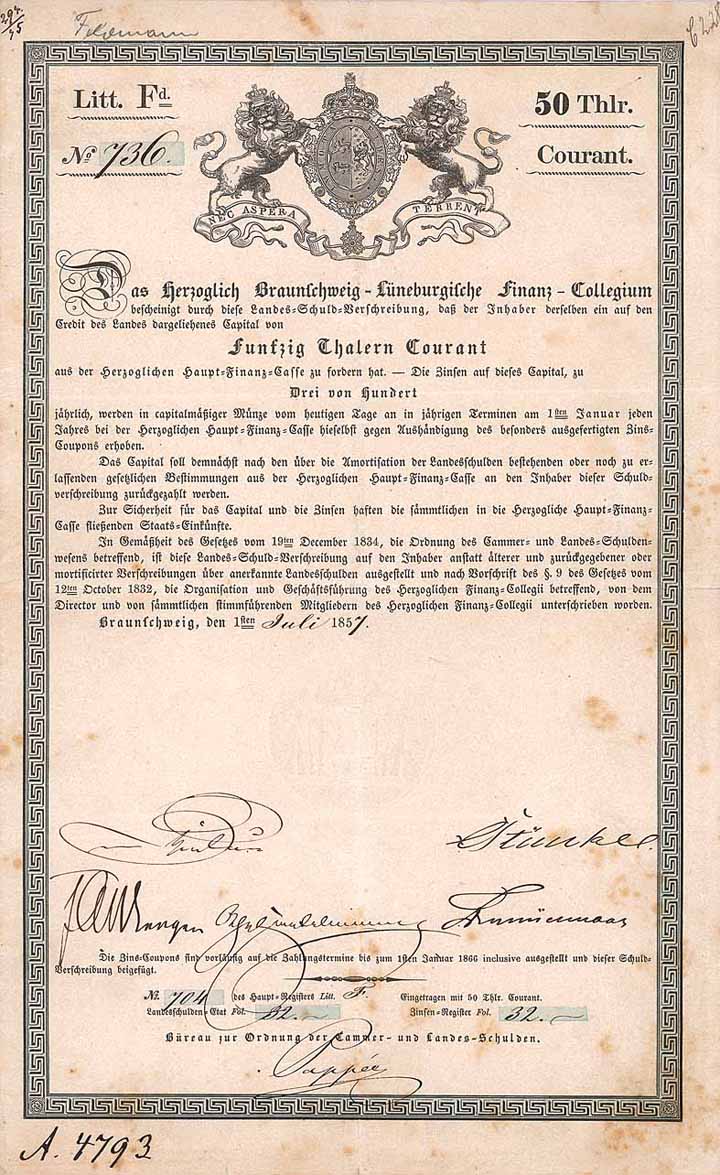 294/45
Feldmann
C 228
Litt. Fd.
No 736.
50 Thlr.
Courant.
NEC ASPERA TERRENT
Das Herzoglich Braunschweig-Lüneburgische Finanz-Collegium
bescheinigt durch diese Landes-Schuld-Verschreibung, daß der Inhaber derselben ein auf den
Credit des Landes dargeliehenes Capital von
Funfzig Thalern Courant
aus der Herzoglichen Haupt-Finanz-Casse zu fordern hat. — Die Zinsen auf dieses Capital, zu
Drei von Hundert
jährlich, werden in capitalmäßiger Münze vom heutigen Tage an in jährigen Terminen am 1sten Januar jeden
Jahres bei der Herzoglichen Haupt-Finanz-Casse hieselbst gegen Aushändigung des besonders ausgefertigten Zins-
Coupons erhoben.
Das Capital soll demnächst nach den über die Amortisation der Landesschulden bestehenden oder noch zu er-
lassenden gesetzlichen Bestimmungen aus der Herzoglichen Haupt-Finanz-Casse an den Inhaber dieser Schuld-
verschreibung zurückgezahlt werden.
Zur Sicherheit für das Capital und die Zinsen haften die sämmtlichen in die Herzogliche Haupt-Finanz-
Casse fließenden Staats-Einkünfte.
In Gemäßheit des Gesetzes vom 19ten December 1834, die Ordnung des Cammer- und Landes-Schulden-
wesens betreffend, ist diese Landes-Schuld-Verschreibung auf den Inhaber anstatt älterer und zurückgegebener oder
mortificirter Verschreibungen über anerkannte Landesschulden ausgestellt und nach Vorschrift des §. 9 des Gesetzes vom
12ten October 1832, die Organisation und Geschäftsführung des Herzoglichen Finanz-Collegii betreffend, von dem
Director und von sämmtlichen stimmführenden Mitgliedern des Herzoglichen Finanz-Collegii unterschrieben worden.
Braunschweig, den 1sten Juli 1857.
Stünkel.
Die Zins-Coupons sind vorläufig auf die Zahlungstermine bis zum 1sten Januar 1866 inclusive ausgestellt und dieser Schuld-
Verschreibung beigefügt.
No. 704 des Haupt-Registers Litt. F. Eingetragen mit 50 Thlr. Courant.
Landesschulden-Etat Fol. 32. Zinsen-Register Fol. 32.
Büreau zur Ordnung der Cammer- und Landes-Schulden.
Pappée
A. 4793